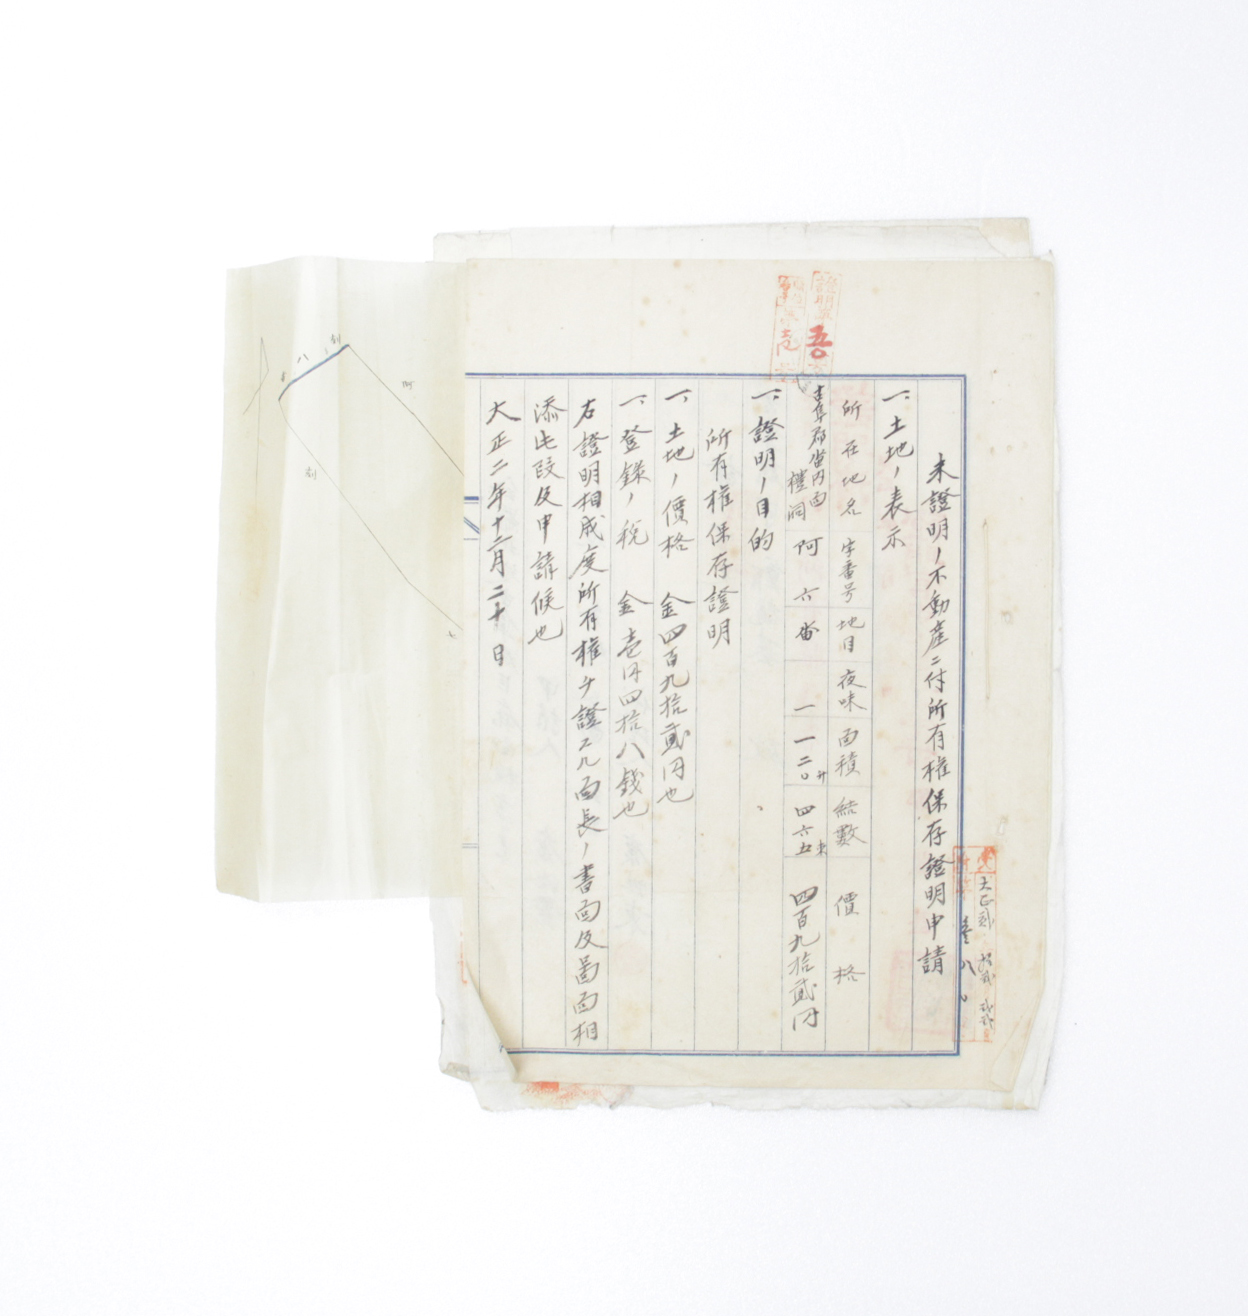 未證明ノ不動産ニ付所有權保存證明申請
一、土地ノ表示
所在地名 字番号 地目 夜味 面積 結數 價格
面 樓洞 阿 六 畓 一 一二〇 四六五束 四百九拾貳円
一、證明ノ目的
所有權保存證明
一、土地ノ價格 金四百九拾貳円也
一、登録ノ税 金壱円四拾八錢也
右證明相成度所有權ヲ證スル面長ノ書面及圖面相
添此段及申請候也
大正二年十二月二十日